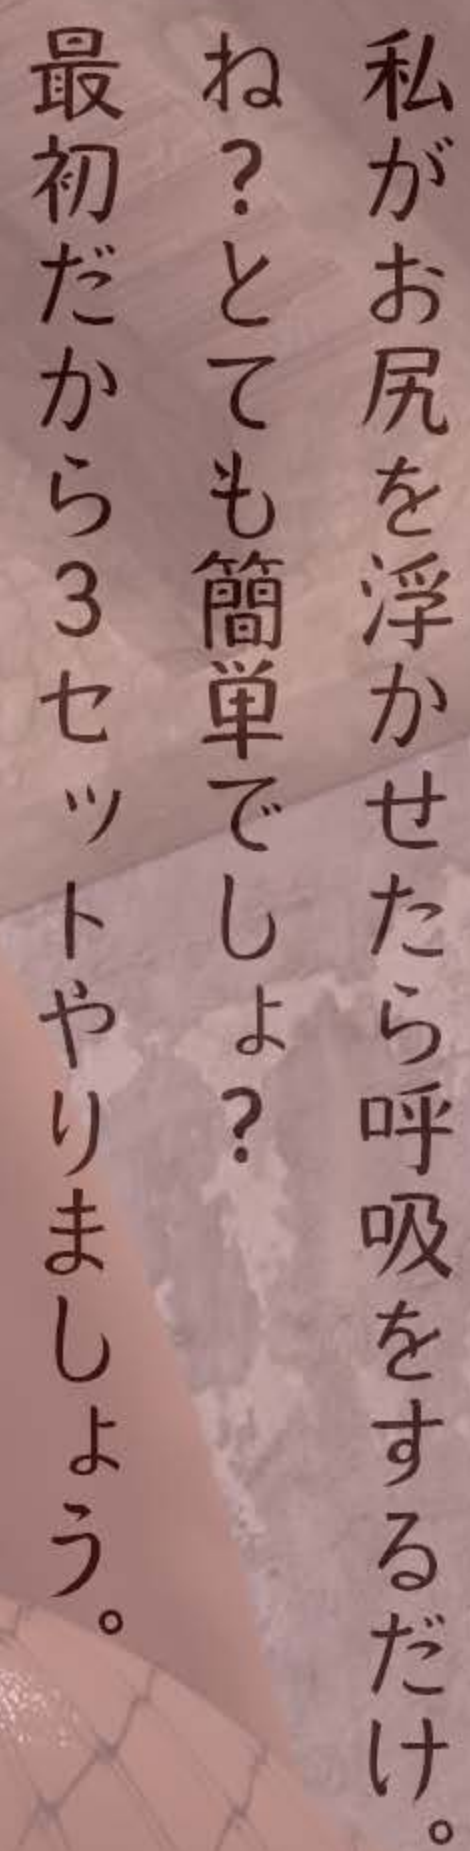 私がお尻を浮かせたら呼吸をするだけ。
ね？とても簡単でしょ？
最初だから3セットやりましょう。